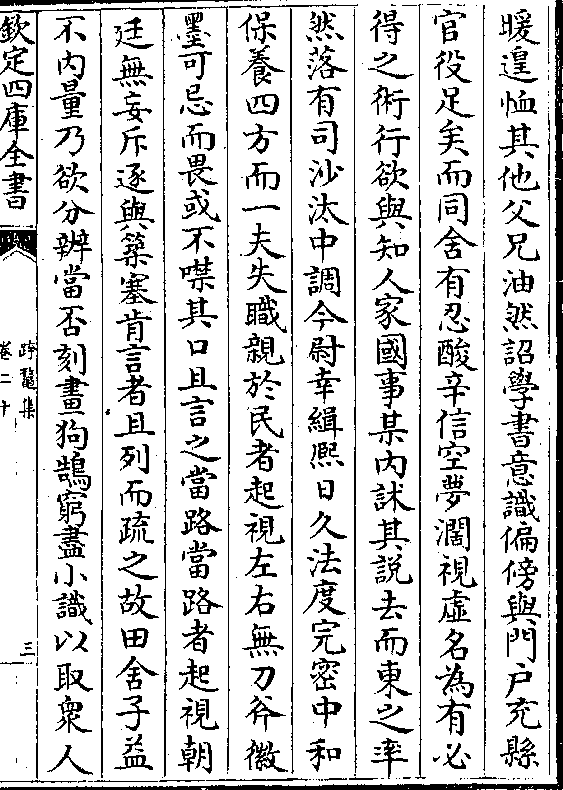 暖遑恤其他父兄油然詔學書意識偏傍與門户充縣
官役足矣而同舍有忍酸辛信空夢濶視虛名為有必
得之術行欲與知人家國事某内訹其説去而東之率
然落有司沙汰中調今尉幸緝熈日久法度完密中和
保養四方而一夫失職親於民者起視左右無刀斧徽
墨可忌而畏或不噤其口且言之當路當路者起視朝
廷無妄斥逐與築塞肯言者且列而疏之故田舍子益
不内量乃欲分辨當否刻畫狗鵠窮盡小識以取衆人
欽定四庫全書
跨鼇集
卷二十
三